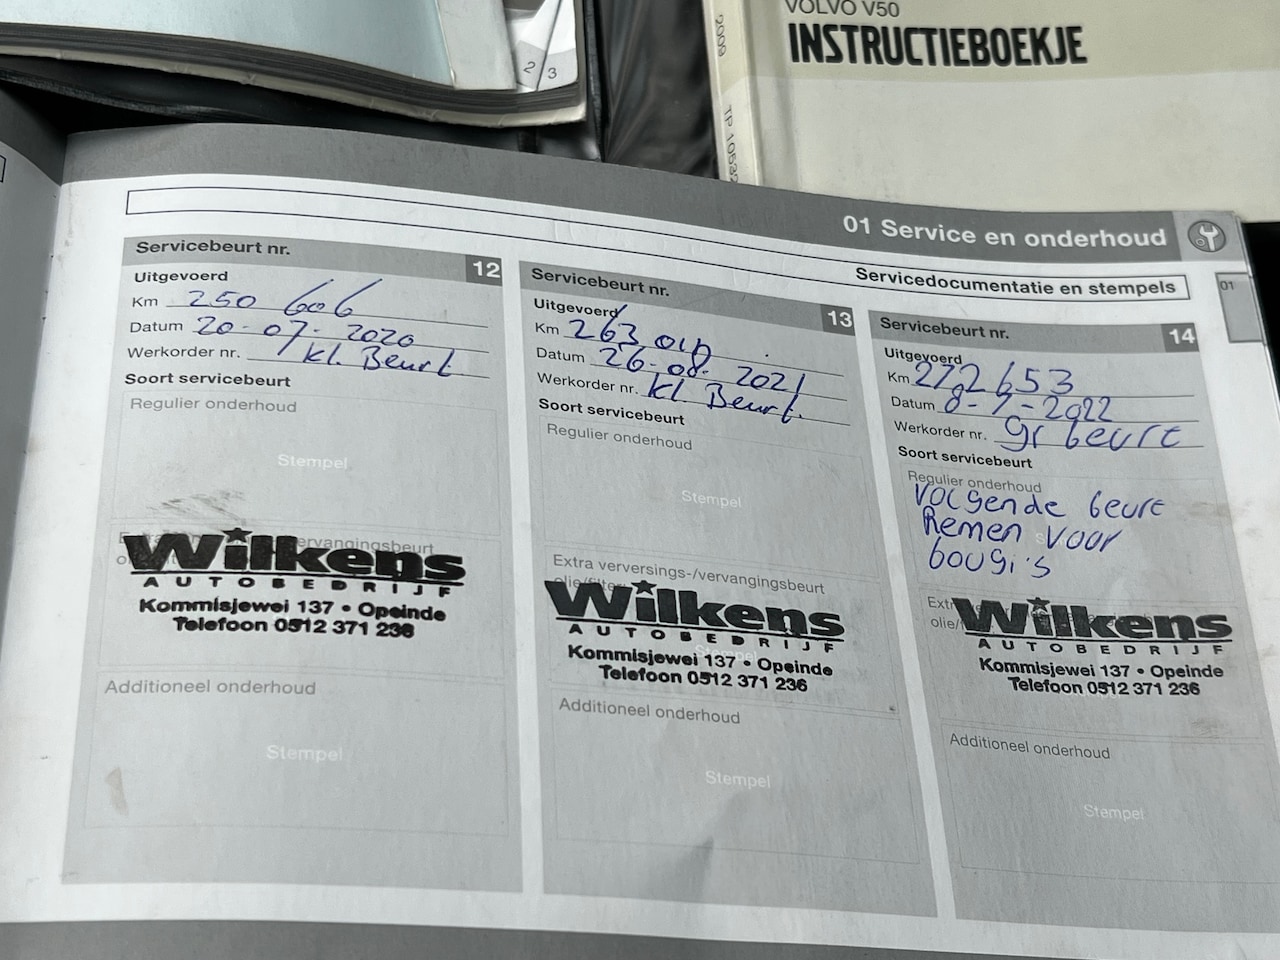 2 3
VOLVO V50
INSTRUCTIEBOEKJE
2009
01 Service en onderhoud
Servicedocumentatie en stempels
01
Servicebeurt nr.
12
Uitgevoerd
Km 250 606
Datum 20-07-2020
Werkorder nr. kl. Beurt
Soort servicebeurt
Regulier onderhoud
Stempel
Wilkens
AUTOBEDRIJF
Kommisjewei 137 • Opeinde
Telefoon 0512 371 236
Additioneel onderhoud
Stempel
Servicebeurt nr.
13
Uitgevoerd
Km 263 018
Datum 26-08-2021
Werkorder nr. kl Beurt.
Soort servicebeurt
Regulier onderhoud
Stempel
Extra verversings-/vervangingsbeurt
olie/filter
Wilkens
AUTOBEDRIJF
Kommisjewei 137 • Opeinde
Telefoon 0512 371 236
Additioneel onderhoud
Stempel
Servicebeurt nr.
14
Uitgevoerd
Km 272653
Datum 8-9-2022
Werkorder nr. gr beurt
Soort servicebeurt
Regulier onderhoud
Volgende beurt
Remen voor
bougi's
Wilkens
AUTOBEDRIJF
Kommisjewei 137 • Opeinde
Telefoon 0512 371 236
Additioneel onderhoud
Stempel